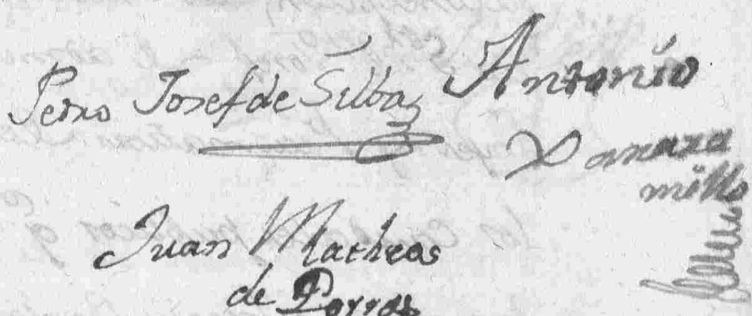 Pedro Josef de Silba
Antonio
Xaramillo
Juan Matheos
de Porras